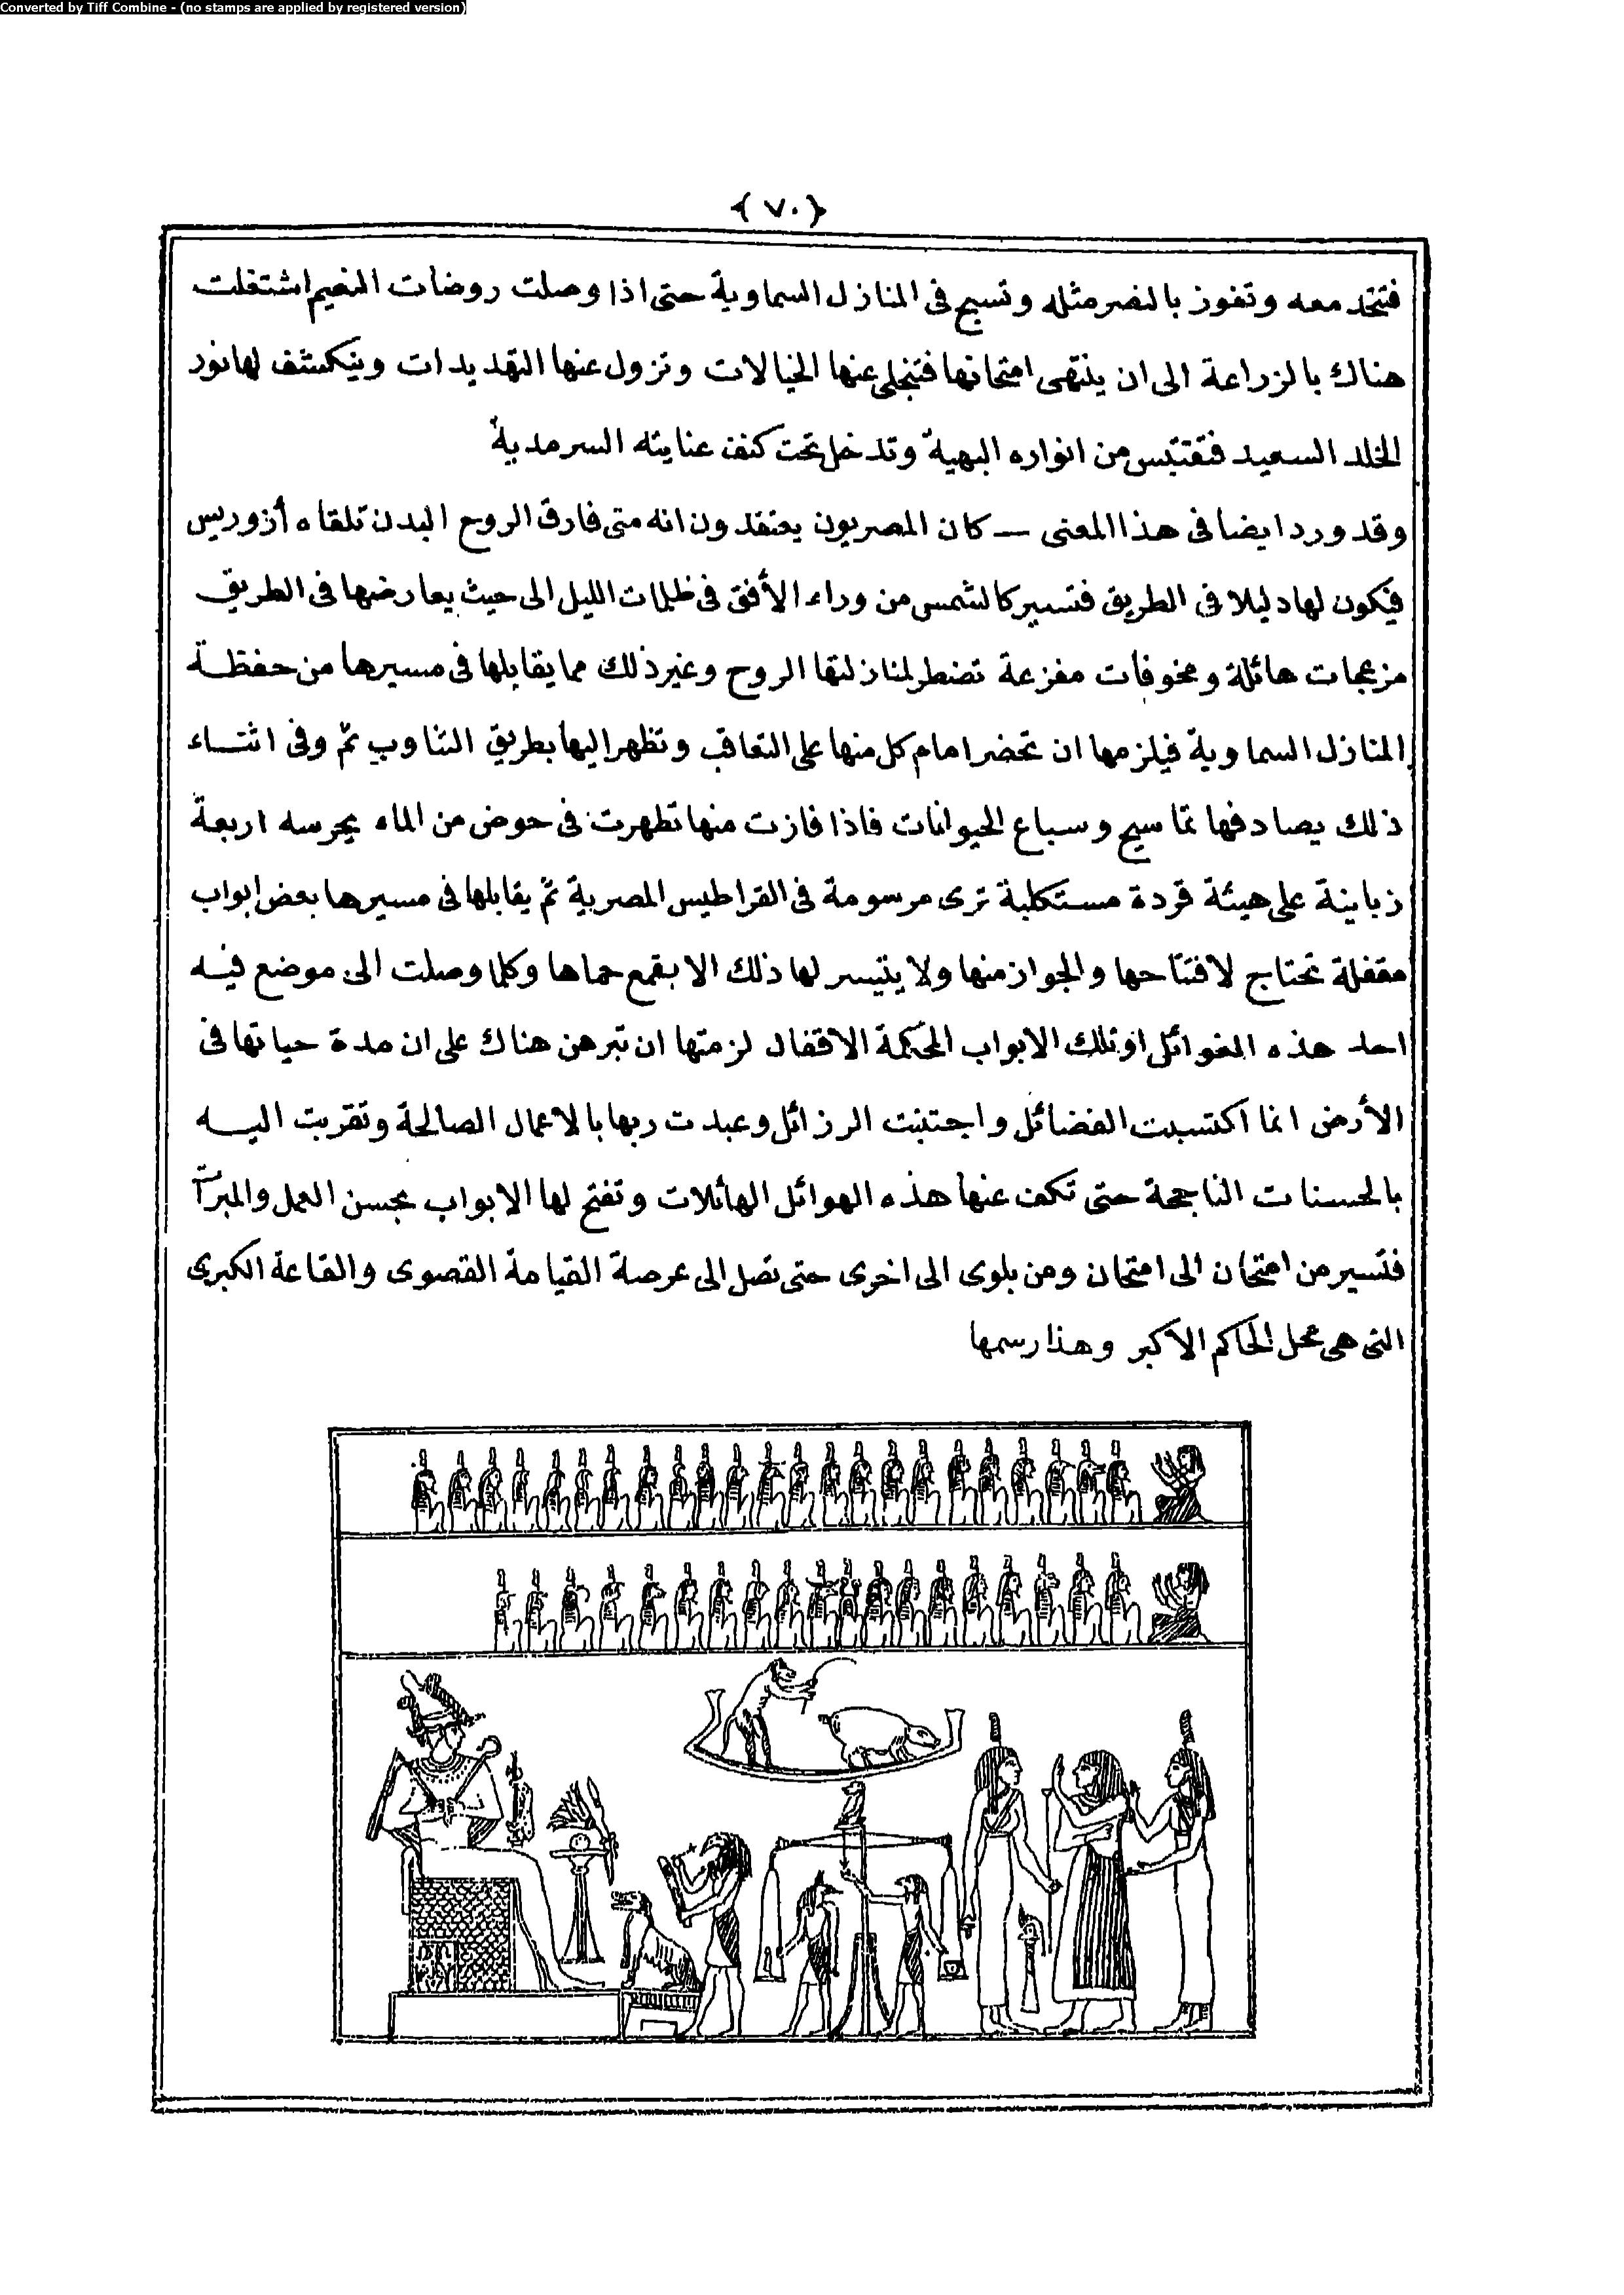 Converted by Tiff Combine - (no stamps are applied by registered version)
{٧٠}
فتتحد معه وتفوز بالنصر مثله وتسبح فى المنازل السماوية حتى اذا وصلت روضات النعيم اشتغلت
هناك بالزراعة الى ان ينتهى امتحانها فتنجلى عنها الخيالات وتزول عنها التهديدات وينكشف لها نور
الخلد السعيد فتقتبس من انواره البهية وتدخل تحت كنف عنايته السرمدية
وقد ورد ايضا فى هذا المعنى — كان المصريون يعتقدون انه متى فارق الروح البدن تلقاه أزوريس
فيكون لها دليلا فى الطريق فتسير كالشمس من وراء الأفق فى ظلمات الليل الى حيث يعارضها فى الطريق
مزعجات هائلة ومخوفات مفزعة تضطر لمنازلتها الروح وغير ذلك مما يقابلها فى مسيرها من حفظة
المنازل السماوية فيلزمها ان تحضر امام كل منها على التعاقب وتظهر اليها بطريق التناوب ثمّ وفى اثناء
ذلك يصادفها تماسيح وسباع الحيوانات فاذا فازت منها تطهرت فى حوض من الماء يحرسه اربعة
زبانية على هيئة قردة مستكلبة ترى مرسومة فى القراطيس المصرية ثمّ يقابلها فى مسيرها بعض ابواب
مقفلة تحتاج لافتتاحها والجواز منها ولا يتيسر لها ذلك الا بقمع حماها وكلما وصلت الى موضع فيه
احد هذه الغوائل او تلك الابواب المحكمة الاقفال لزمتها ان تبرهن هناك على ان مدة حياتها فى
الأرض انما اكتسبت الفضائل واجتنبت الرزائل وعبدت ربها بالاعمال الصالحة وتقربت اليه
بالحسنات الناجحة حتى تكف عنها هذه الهوائل الهائلات وتفتح لها الابواب بحسن العمل والمبرآت
فتسير من امتحان الى امتحان ومن بلوى الى اخرى حتى تصل الى عرصة القيامة القصوى والقاعة الكبرى
التى هى محل الحاكم الاكبر وهذا رسمها